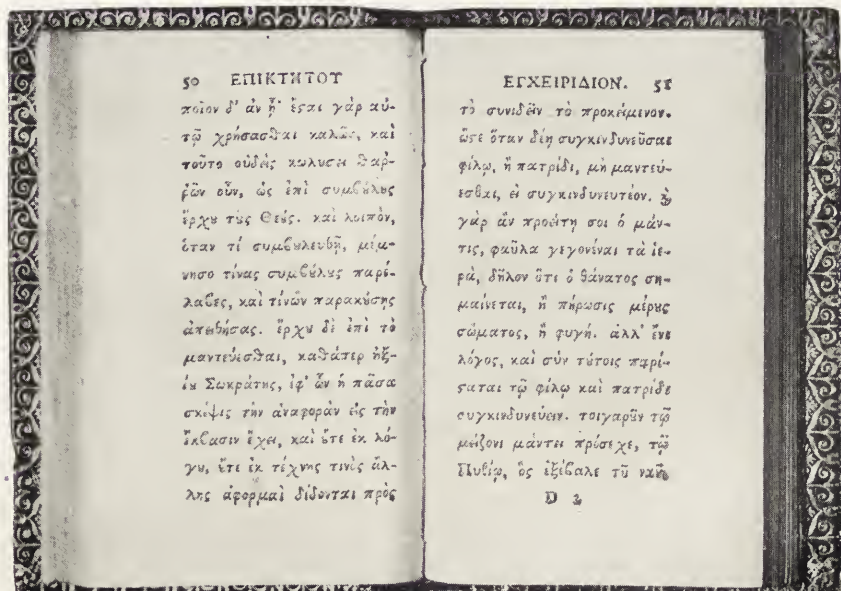 50 ΕΠΙΚΤΗΤΟΥ
ποῖον δ' ἂν ᾖ· ἔςαι γὰρ αὐ-
τῷ χρήσασθαι καλῶς, καὶ
τοῦτο οὐδεὶς κωλύσει· θαρ-
ῥῶν οὖν, ὡς ἐπὶ συμβȣ́λȣς
ἔρχȣ τȣ̀ς Θεȣ́ς. καὶ λοιπὸν,
ὅταν τί συμβȣλευθῇ, μέμ-
νησο τίνας συμβȣ́λȣς παρέ-
λαβες, καὶ τίνων παρακȣ́σῃς
ἀπειθήσας. ἔρχȣ δὲ ἐπὶ τὸ
μαντεύεσθαι, καθάπερ ἠξ-
ίȣ Σωκράτης, ἐφ' ὧν ἡ πᾶσα
σκέψις τὴν ἀναφορὰν εἰς τὴν
ἔκβασιν ἔχει, καὶ ȣ̓́τε ἐκ λό-
γȣ, ȣ̓́τε ἐκ τέχνης τινὸς ἄλ-
λης ἀφορμαὶ δίδονται πρὸς
ΕΓΧΕΙΡΙΔΙΟΝ. 51
τὸ συνιδεῖν τὸ προκείμενον.
ὥςε ὅταν δέῃ συγκινδυνεῦσαι
φίλῳ, ἢ πατρίδι, μὴ μαντεύ-
εσθαι, εἰ συγκινδυνευτέον. ϗ̀
γὰρ ἂν προείπῃ σοι ὁ μάν-
τις, φαῦλα γεγονέναι τὰ ἱε-
ρὰ, δῆλον ὅτι ὁ θάνατος ση-
μαίνεται, ἢ πήρωσις μέρȣς
σώματος, ἢ φυγή. ἀλλ'
λόγος, καὶ σὺν τȣ́τοις παρί-
ςαται τῷ φίλῳ καὶ πατρίδι
συγκινδυνεύειν. τοιγαρȣ͂ν τῷ
μείζονι μάντει πρόσεχε, τῷ
Πυθίῳ, ὃς ἐξέβαλε τȣ͂ ναȣ͂
D 2